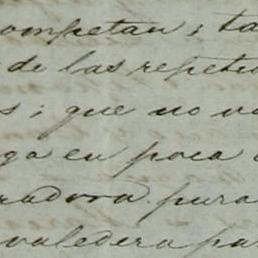 ompetan; ta
de las repetid
s; que no va
ga en poca
radora. pura
valedera pa